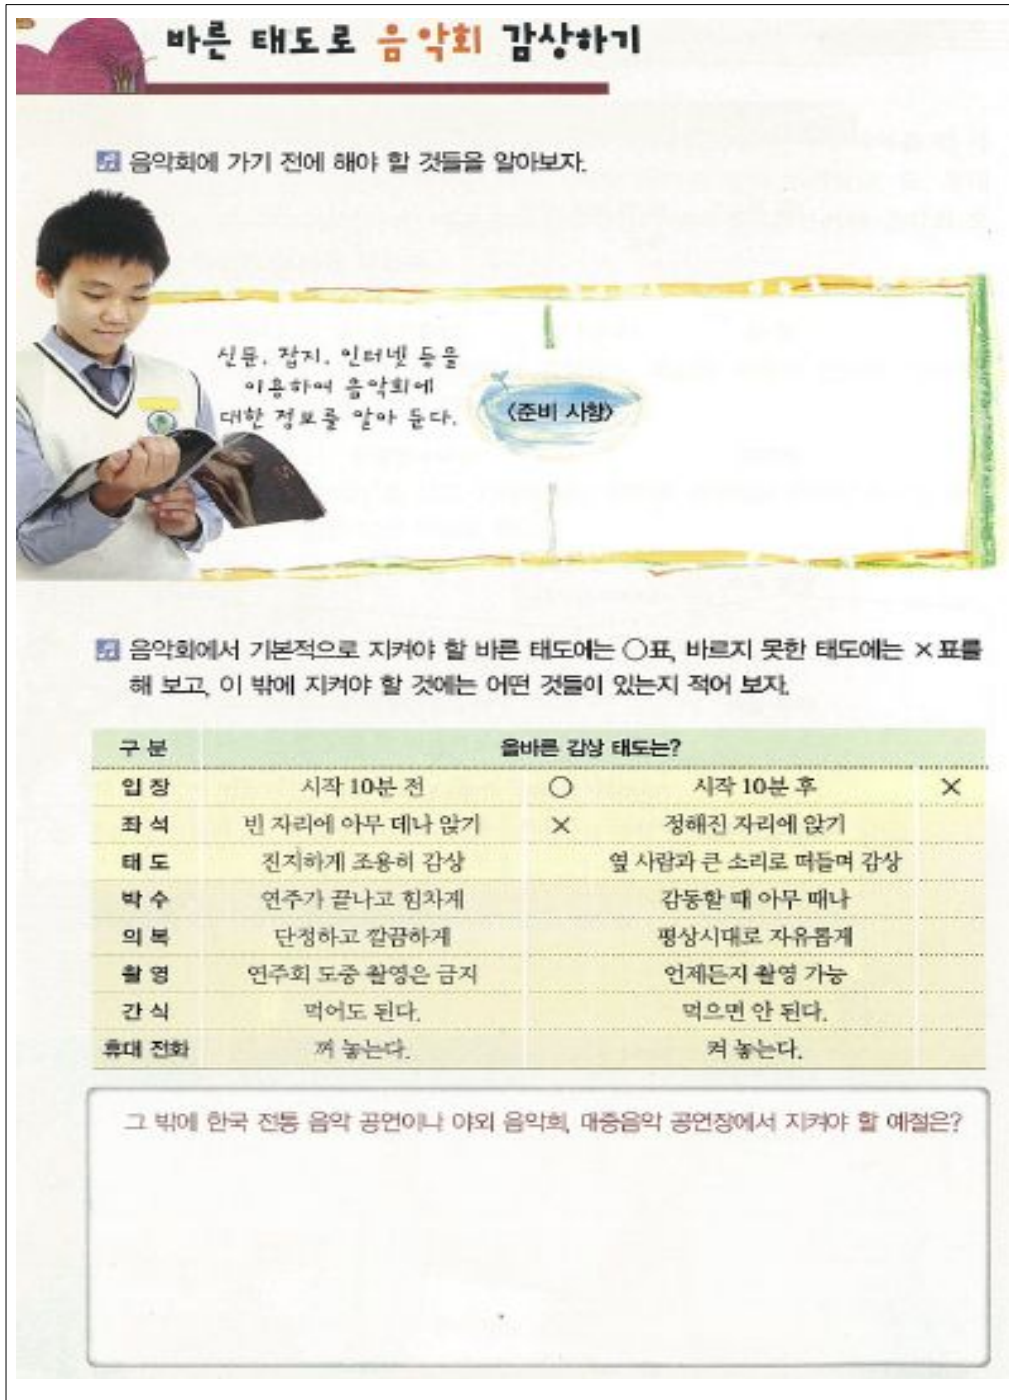 바른 태도로 음악회 감상하기
음악회에 가기 전에 해야 할 것들을 알아보자.
신문, 잡지, 인터넷 등을
이용하여 음악회에
대한 정보를 알아 둔다.
<준비 사항>
음악회에서 기본적으로 지켜야 할 바른 태도에는 ○표, 바르지 못한 태도에는 ×표를
해 보고, 이 밖에 지켜야 할 것에는 어떤 것들이 있는지 적어 보자.
구 분 올바른 감상 태도는?
입 장 시작 10분 전 ○ 시작 10분 후 ×
좌 석 빈 자리에 아무 데나 앉기 × 정해진 자리에 앉기
태 도 진지하게 조용히 감상 옆 사람과 큰 소리로 떠들며 감상
박 수 연주가 끝나고 힘차게 감동할 때 아무 때나
의 복 단정하고 깔끔하게 평상시대로 자유롭게
촬 영 연주회 도중 촬영은 금지 언제든지 촬영 가능
간 식 먹어도 된다. 먹으면 안 된다.
휴대 전화 꺼 놓는다. 켜 놓는다.
그 밖에 한국 전통 음악 공연이나 야외 음악회, 대중음악 공연장에서 지켜야 할 예절은?